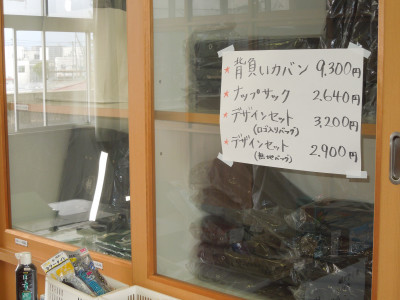 ★背負いカバン 9,300円
★ナップサック 2,640円
★デザインセット 3,200円
(ロゴ入りバッグ)
★デザインセット 2,900円
(無地バッグ)